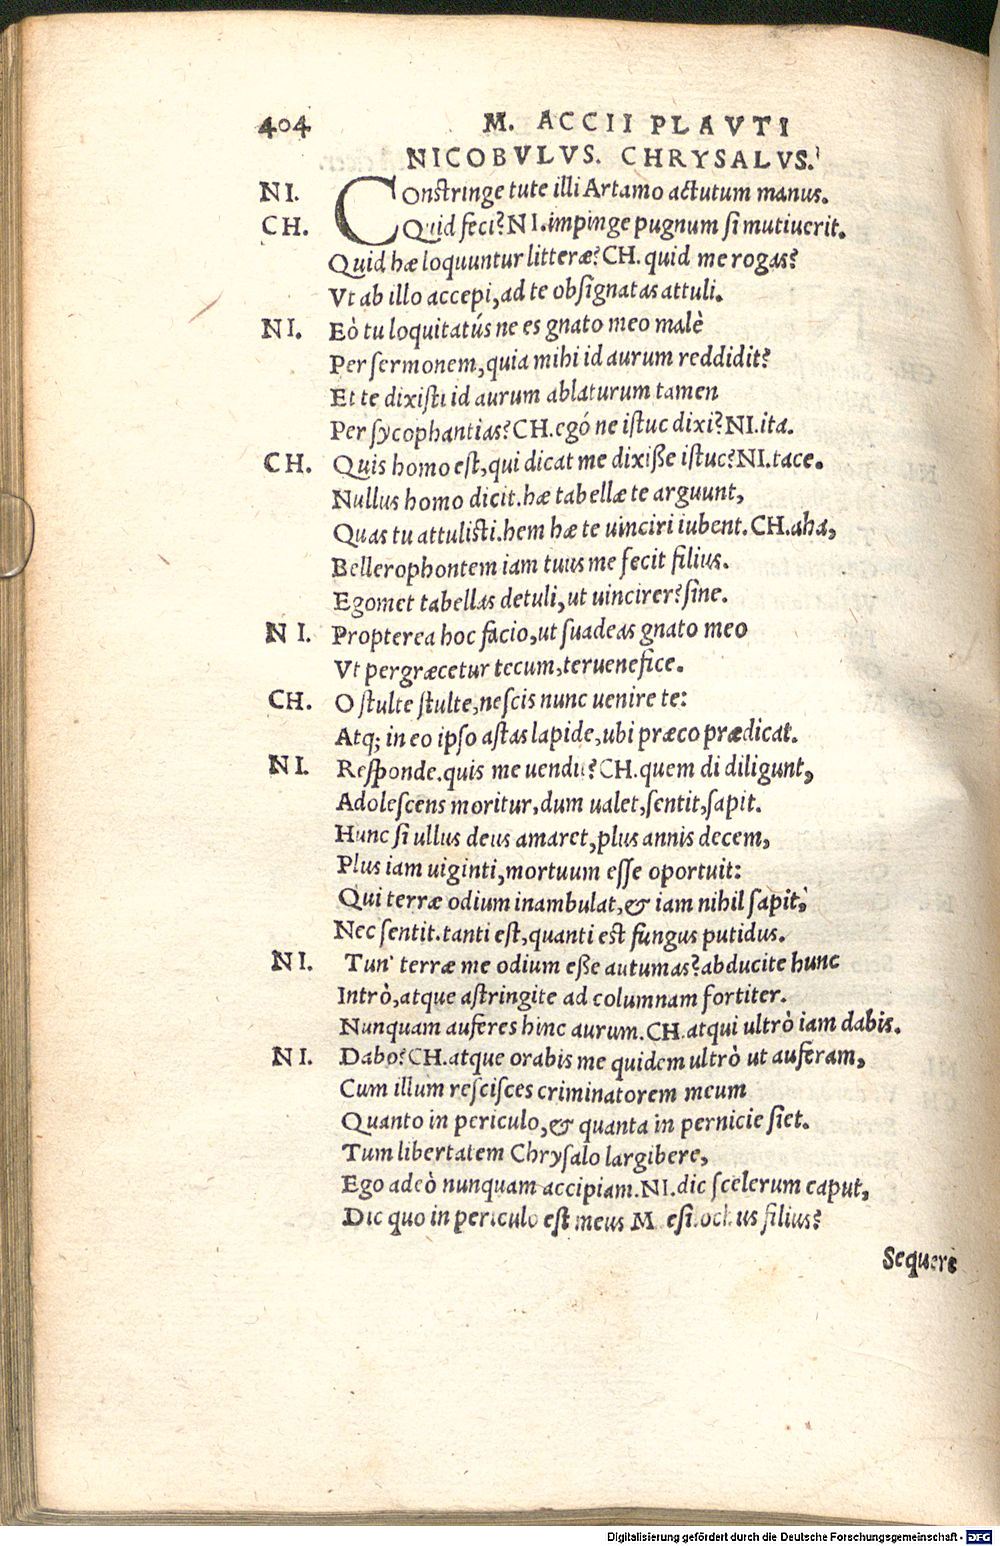 404 M. ACCII PLAVTI
NICOBVLVS. CHRYSALVS.
NI. Constringe tute illi Artamo actutum manus.
CH. Quid feci? NI. impinge pugnum si mutiuerit.
Quid hæ loquuntur litteræ? CH. quid me rogas?
Vt ab illo accepi, ad te obsignatas attuli.
NI. Eò tu loquitatús ne es gnato meo malè
Per sermonem, quia mihi id aurum reddidit?
Et te dixisti id aurum ablaturum tamen
Per sycophantias? CH. egó ne istuc dixi? NI. ita.
CH. Quis homo est, qui dicat me dixiße istuc? NI. tace.
Nullus homo dicit. hæ tabellæ te arguunt,
Quas tu attulisti. hem hæ te uinciri iubent. CH. aha,
Bellerophontem iam tuus me fecit filius.
Egomet tabellas detuli, ut uincirer? sine.
NI. Propterea hoc facio, ut suadeas gnato meo
Vt pergræcetur tecum, teruenefice.
CH. O stulte stulte, nescis nunc uenire te:
Atq; in eo ipso astas lapide, ubi præco prædicat.
NI. Responde. quis me uendit? CH. quem di diligunt,
Adolescens moritur, dum ualet, sentit, sapit.
Hunc si ullus deus amaret, plus annis decem,
Plus iam uiginti, mortuum esse oportuit:
Qui terræ odium inambulat, & iam nihil sapit,
Nec sentit. tanti est, quanti est fungus putidus.
NI. Tun' terræ me odium eße autumas? abducite hunc
Intrò, atque astringite ad columnam fortiter.
Nunquam auferes hinc aurum. CH. atqui ultrò iam dabis.
NI. Dabo? CH. atque orabis me quidem ultrò ut auferam,
Cum illum rescisces criminatorem meum
Quanto in periculo, & quanta in pernicie siet.
Tum libertatem Chrysalo largibere,
Ego adeò nunquam accipiam. NI. dic scelerum caput,
Dic quo in periculo est meus Mnesilochus filius?
Sequere
Digitalisierung gefördert durch die Deutsche Forschungsgemeinschaft - DFG